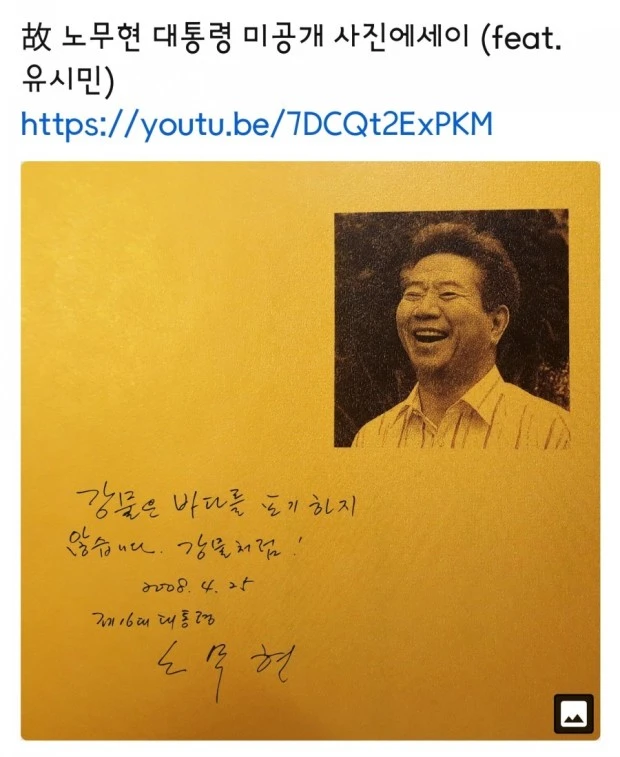 故 노무현 대통령 미공개 사진에세이 (feat.
유시민)
https://youtu.be/7DCQt2ExPKM
강물은 바다를 포기하지
않습니다. 강물처럼!
2008. 4. 25
제16대 대통령
노무현